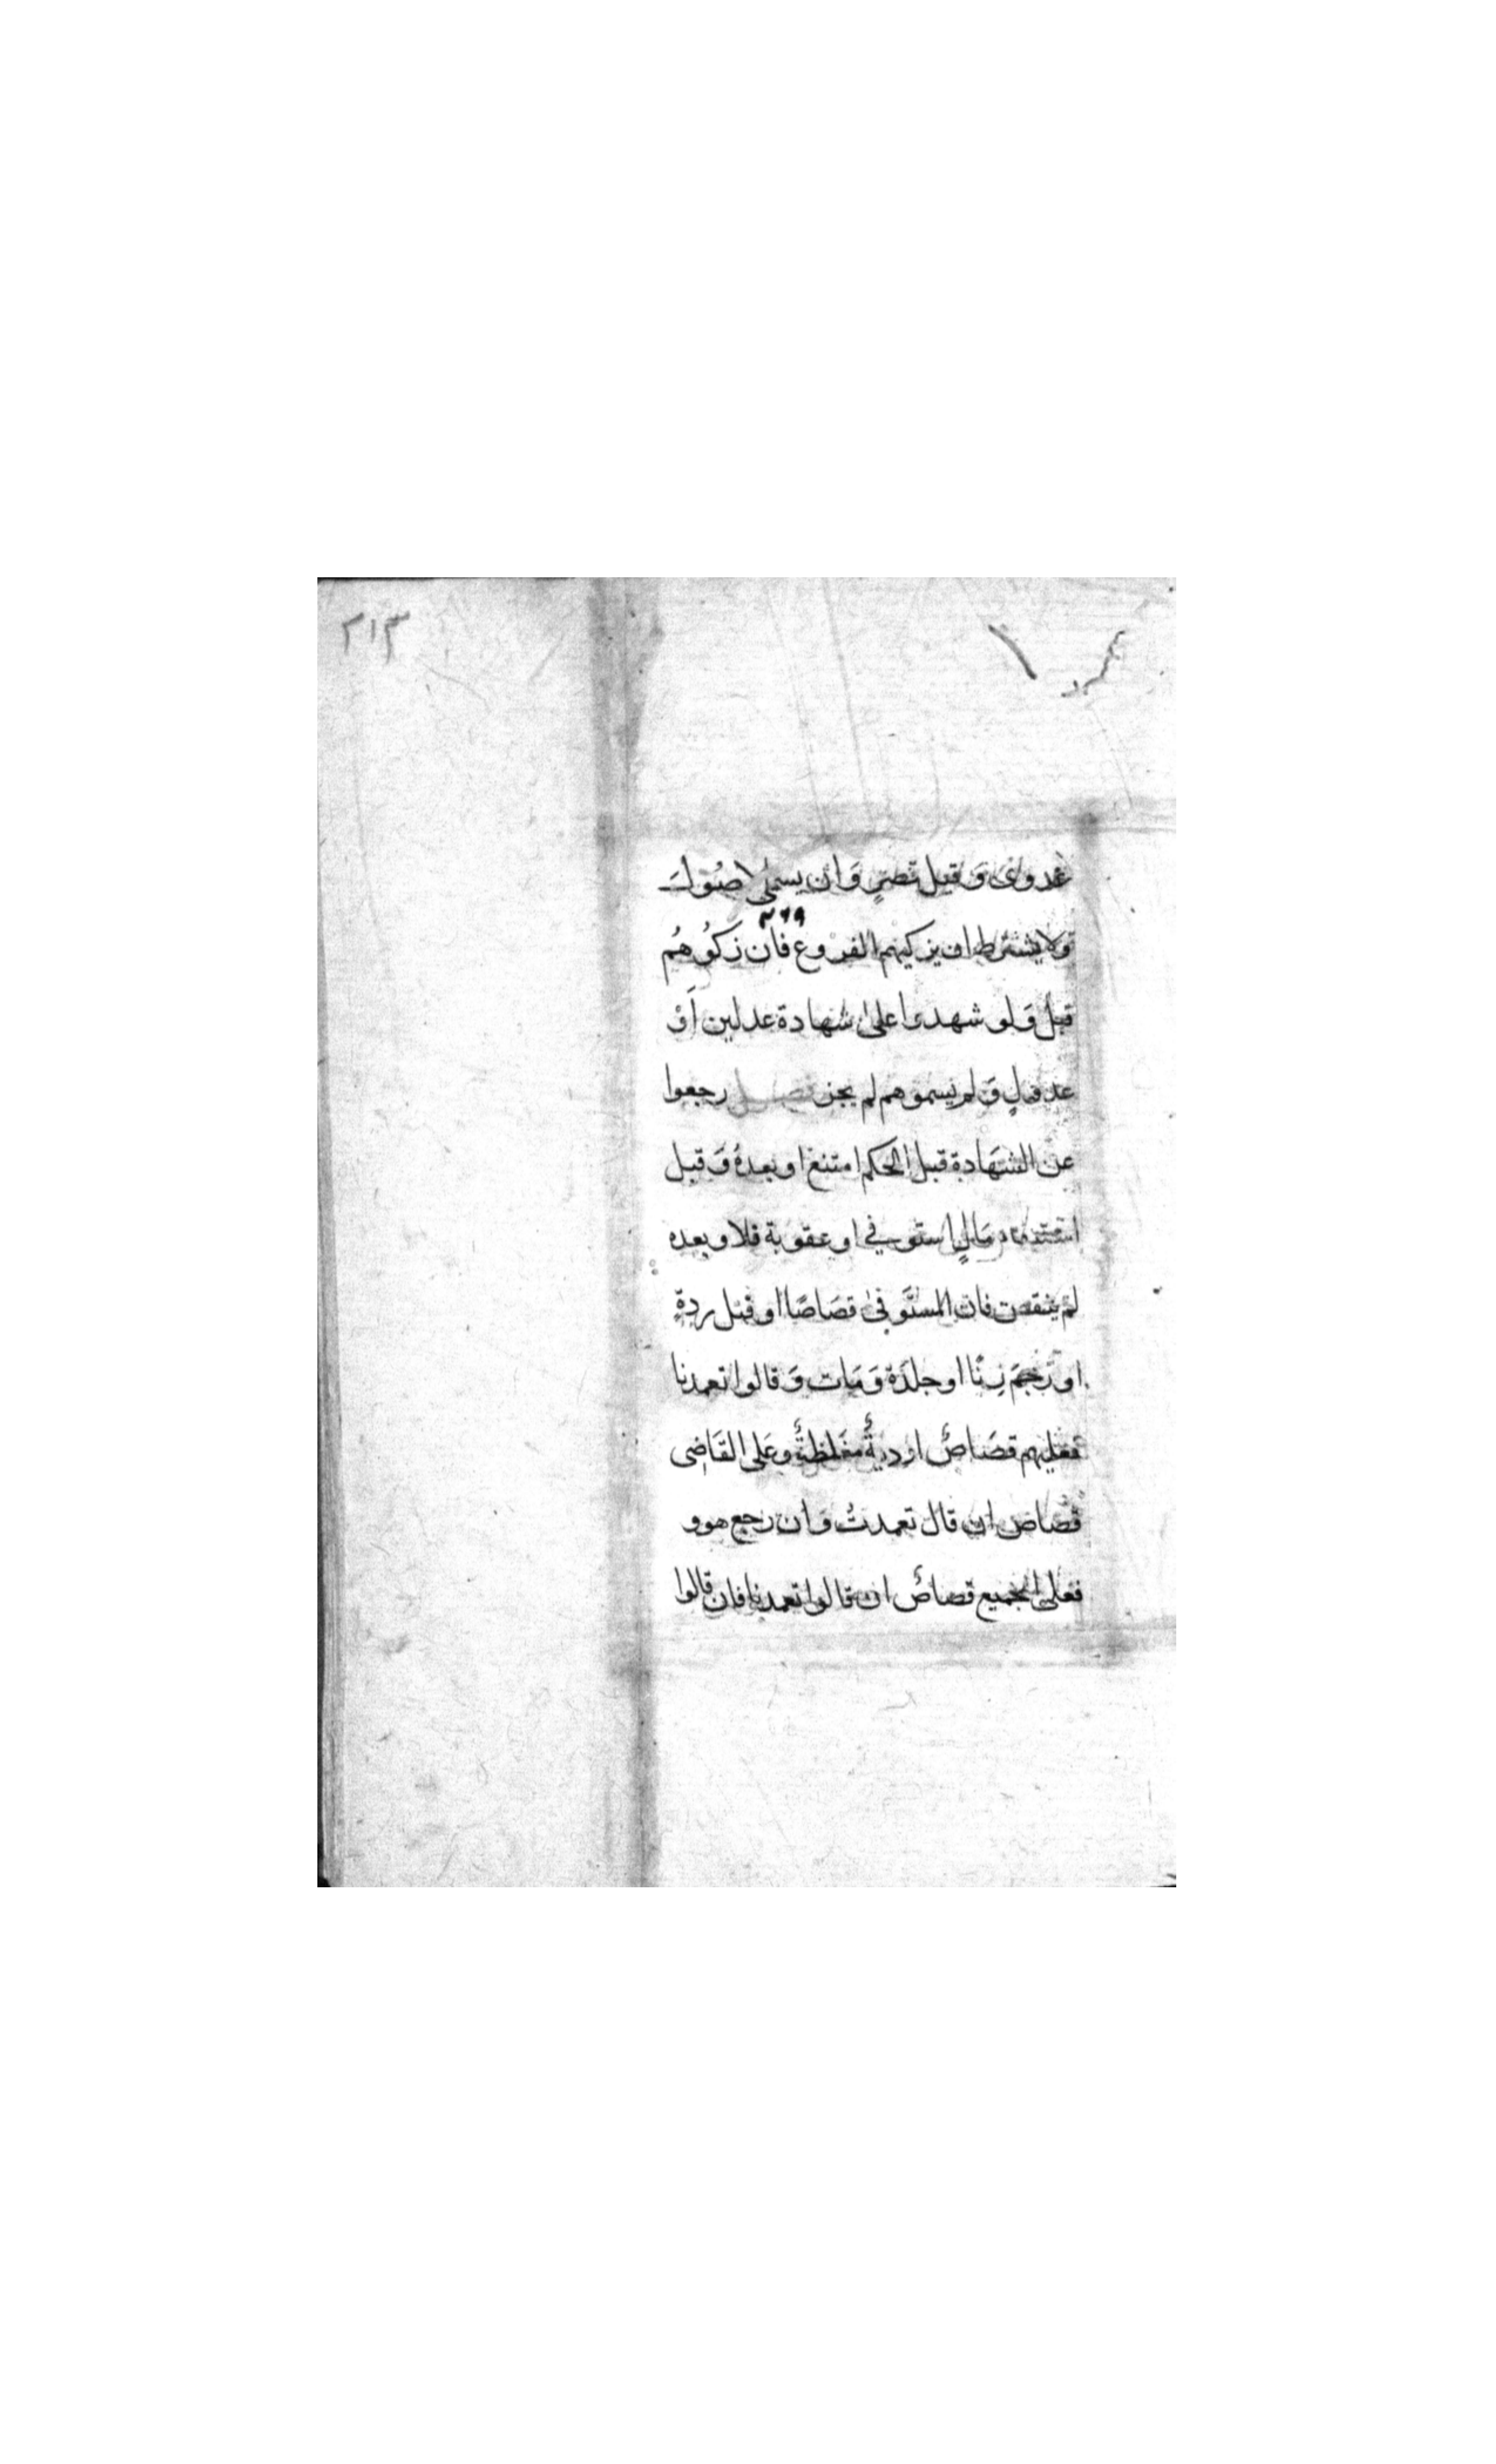 ٢١٣
عدوى وقيل تصير وان يسمى لاصول
ولا يشترط ان يزكيهم الفروع فان زكوهم
قبل ولو شهدوا على شهادة عدلين او
عدول ولم يسموهم لم يجز فصل رجعوا
عن الشهادة قبل الحكم امتنع او بعده وقبل
مال استوفي او عقوبة فلا وبعده
لم ينقض فان المستوفى قصاصا او قتل ردة
او رجم زنا او جلدة ومات وقالوا تعمدنا
فعليهم قصاص او دية مغلظة وعلى القاضى
قصاص ان قال تعمدت وان رجع هو و
فعلى الجميع قصاص ان قالوا تعمدنا فان قالوا